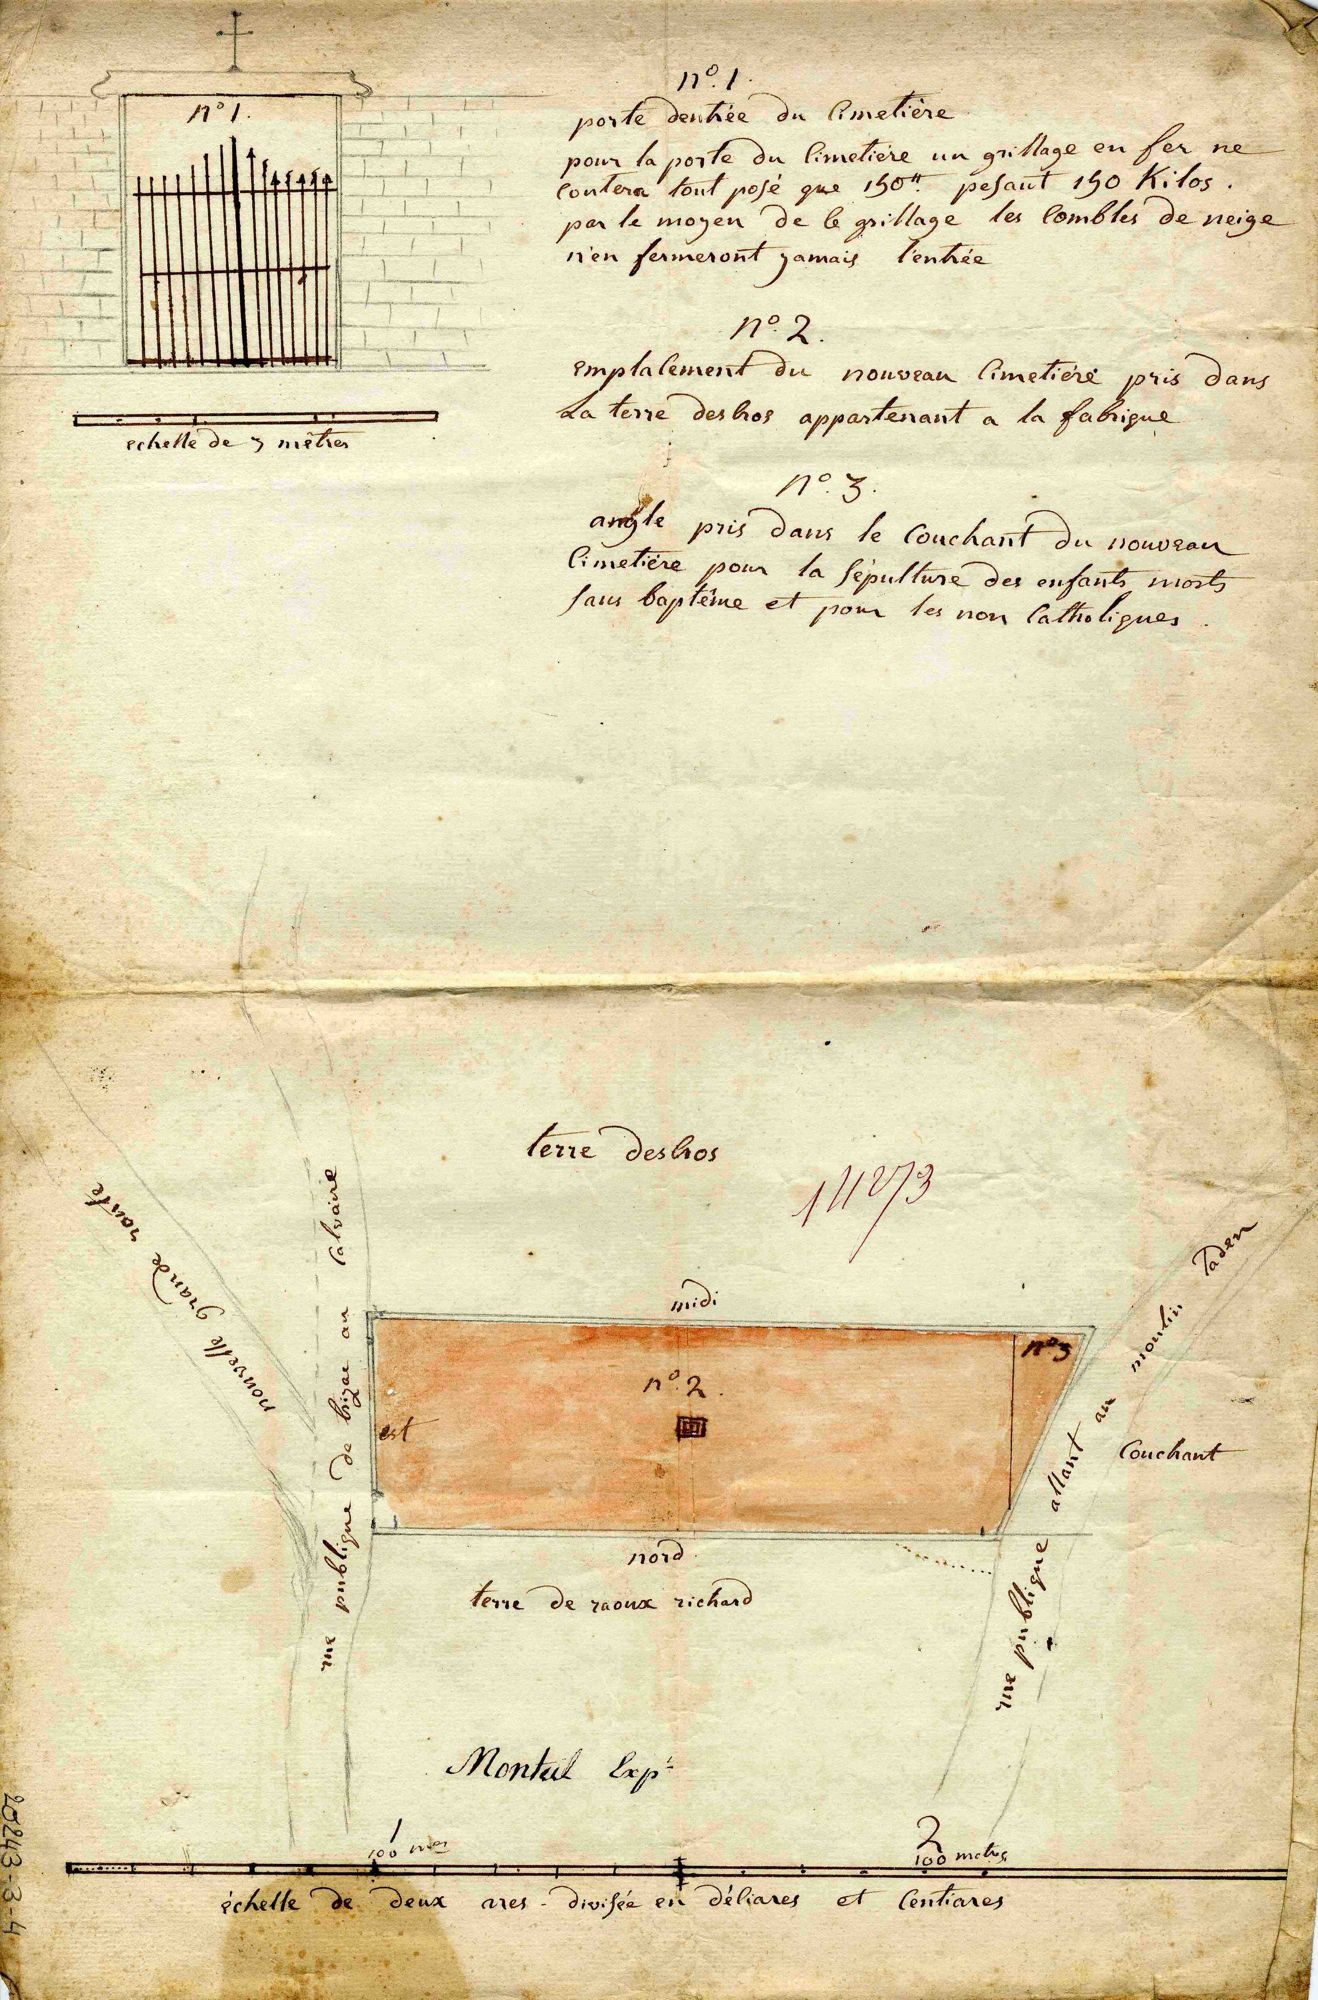 n° 1.
n° 1.
porte dentrée du Cimetière
pour la porte du Cimetière un grillage en fer ne
Coutera tout posé que 150ᶠᶠ pesant 150 Kilos.
par le moyen de Ce grillage les Combles de neige
n'en fermeront jamais l'entrée
échelle de 3 mètres
n° 2.
emplacement du nouveau Cimetière pris dans
La terre desbros appartenant a la fabrique
n° 3.
angle pris dans le Couchant du nouveau
Cimetière pour la sépulture des enfants morts
sans baptême et pour les non Catholiques.
terre desbros
nouvelle grande route
rue publique de bizac au Calvaire
midi
n° 2.
n° 3
est
Couchant
nord
rue publique allant au moulin Paden
terre de raoux richard
Montul Expᵗ
1
100 mes
2
100 metres
échelle de deux ares - divisée en déciares et Centiares
20243-3-4